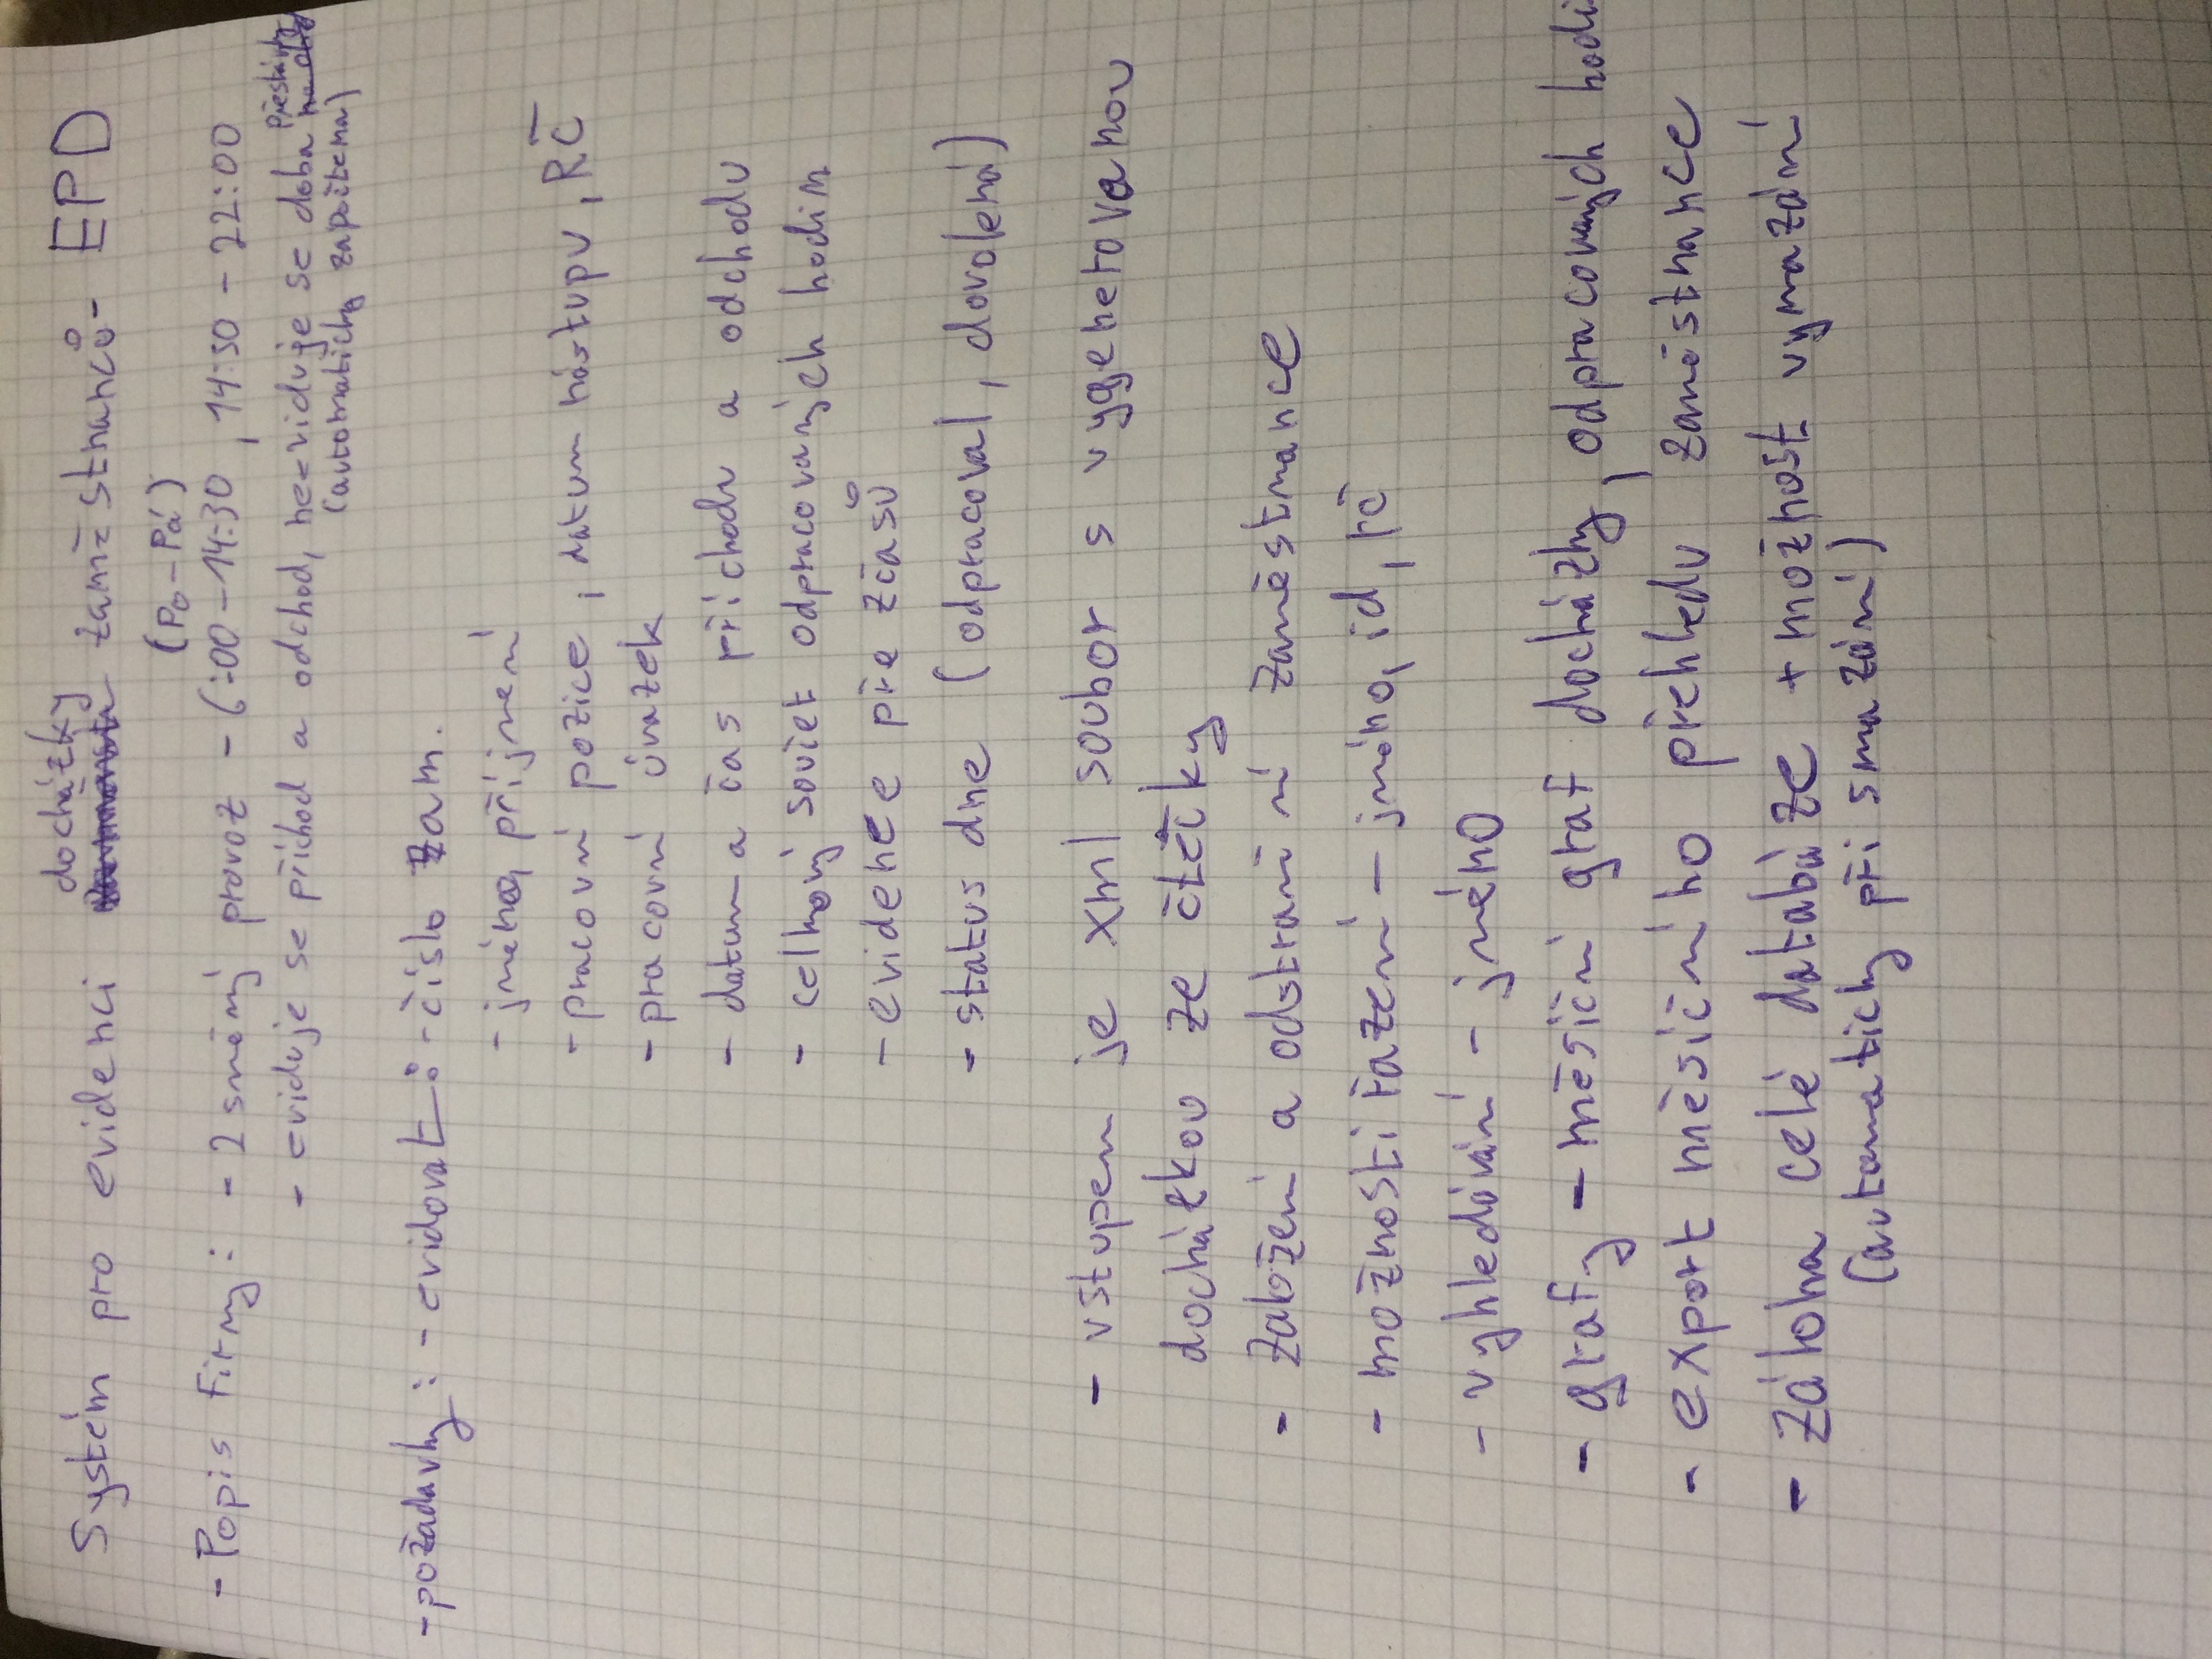 Systém pro evidenci docházky zaměstnanců - EPD
(Po-Pá)
- Popis firmy: - 2 směný provoz - 6:00-14:30, 14:30-22:00
- eviduje se příchod a odchod, neeviduje se doba přestávky
(automaticky započtena)
- požadavky: - evidovat: - číslo zam.
- jméno, příjmení
- pracovní pozice, datum nástupu, RČ
- pracovní úvazek
- datum a čas příchodu a odchodu
- celkový součet odpracovaných hodin
- evidence přesčasů
- status dne (odpracoval, dovolená)
- vstupem je xml soubor s vygenerovanou
docházkou ze čtečky
- založení a odstranění zaměstnance
- možnosti řazení - jméno, id, rč
- vyhledávání - jméno
- grafy - měsíční graf docházky, odpracovaných hodi
- export měsíčního přehledu zaměstnance
- záloha celé databáze + možnost vymazání
(automaticky při smazání)